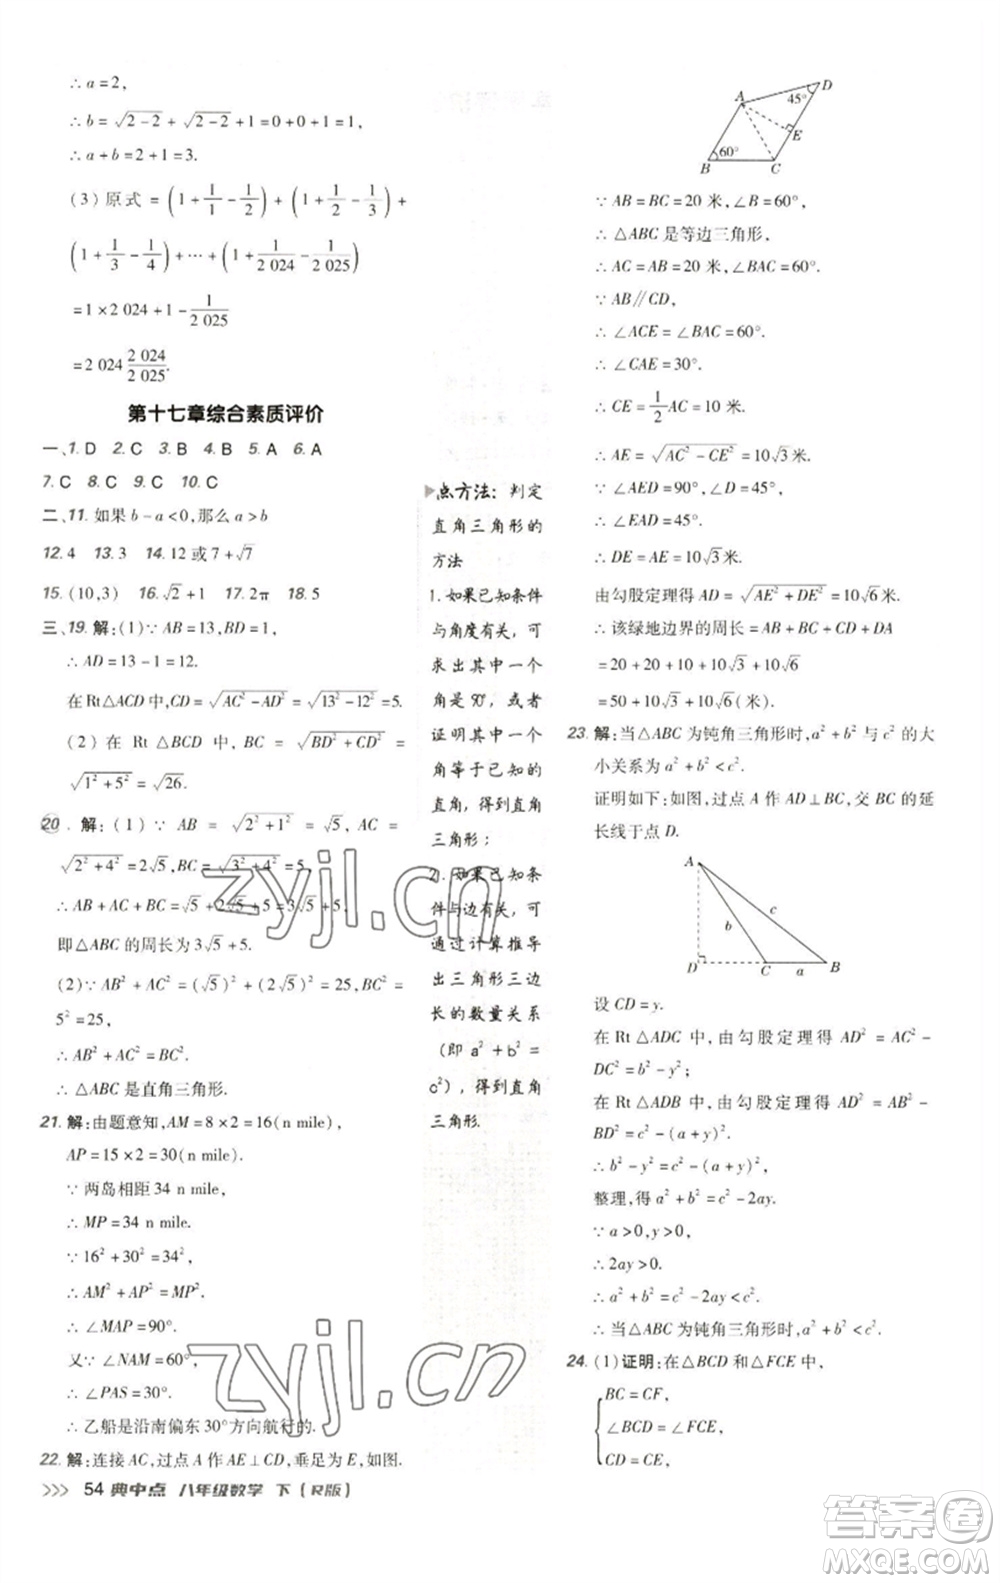 ∴ a=2,
∴ b=√(2-2)+√(2-2)+1=0+0+1=1,
∴ a+b=2+1=3.
(3)原式=(1+1/1-1/2)+(1+1/2-1/3)+
(1+1/3-1/4)+…+(1+1/2 024-1/2 025)
=1×2 024+1-1/2 025
=2 024 2 024/2 025.
第十七章综合素质评价
一、1. D 2. C 3. B 4. B 5. A 6. A
7. C 8. C 9. C 10. C
二、11. 如果 b-a<0,那么 a>b
12. 4 13. 3 14. 12 或 7+√7
15. (10,3) 16. √2+1 17. 2π 18. 5
三、19. 解:(1)∵ AB=13,BD=1,
∴ AD=13-1=12.
在Rt△ACD中,CD=√(AC²-AD²)=√(13²-12²)=5.
(2)在 Rt △BCD 中, BC = √(BD²+CD²) =
√(1²+5²)=√26.
20. 解:(1)∵ AB = √(2²+1²) = √5, AC =
√(2²+4²)=2√5,BC=√(3²+4²)=5,
∴ AB+AC+BC=√5+2√5+5=3√5+5,
即△ABC的周长为3√5+5.
(2)∵ AB²+AC²=(√5)²+(2√5)²=25,BC²=
5²=25,
∴ AB²+AC²=BC².
∴ △ABC是直角三角形.
21. 解:由题意知,AM=8×2=16(n mile),
AP=15×2=30(n mile).
∵ 两岛相距34 n mile,
∴ MP=34 n mile.
∵ 16²+30²=34²,
∴ AM²+AP²=MP².
∴ ∠MAP=90°.
又∵ ∠NAM=60°,
∴ ∠PAS=30°.
∴ 乙船是沿南偏东30°方向航行的.
22. 解:连接AC,过点A作AE⊥CD,垂足为E,如图.
>>> 54 典中点 八年级数学 下(R版)
点方法:判定
直角三角形的
方法
1.如果已知条件
与角度有关,可
求出其中一个
角是90°,或者
证明其中一个
角等于已知的
直角,得到直角
三角形;
2.如果已知条
件与边有关,可
通过计算推导
出三角形三边
长的数量关系
(即 a²+b²=
c²),得到直角
三角形.
A
D
45°
E
60°
B
C
∵ AB=BC=20 米,∠B=60°,
∴ △ABC 是等边三角形,
∴ AC=AB=20 米,∠BAC=60°.
∵ AB∥CD,
∴ ∠ACE=∠BAC=60°.
∴ ∠CAE=30°.
∴ CE=1/2AC=10 米,
∴ AE=√(AC²-CE²)=10√3米.
∵ ∠AED=90°,∠D=45°,
∴ ∠EAD=45°.
∴ DE=AE=10√3米.
由勾股定理得 AD=√(AE²+DE²)=10√6米.
∴ 该绿地边界的周长=AB+BC+CD+DA
=20+20+10+10√3+10√6
=50+10√3+10√6(米).
23. 解:当△ABC 为钝角三角形时,a²+b²与c²的大
小关系为a²+b²<c².
证明如下:如图,过点 A 作 AD⊥BC,交 BC 的延
长线于点 D.
A
c
b
D
C
a
B
设 CD=y.
在 Rt △ADC 中,由勾股定理得 AD²=AC²-
DC²=b²-y²;
在 Rt △ADB 中,由勾股定理得 AD²=AB²-
BD²=c²-(a+y)²;
∴ b²-y²=c²-(a+y)².
整理,得a²+b²=c²-2ay.
∵ a>0,y>0,
∴ 2ay>0.
∴ a²+b²=c²-2ay<c².
∴ 当△ABC为钝角三角形时,a²+b²<c².
24. (1)证明:在△BCD和△FCE中,
BC=CF,
∠BCD=∠FCE,
DC=EC,
zyjl.cn
zyjl.cn
答案卷
MXQE.COM